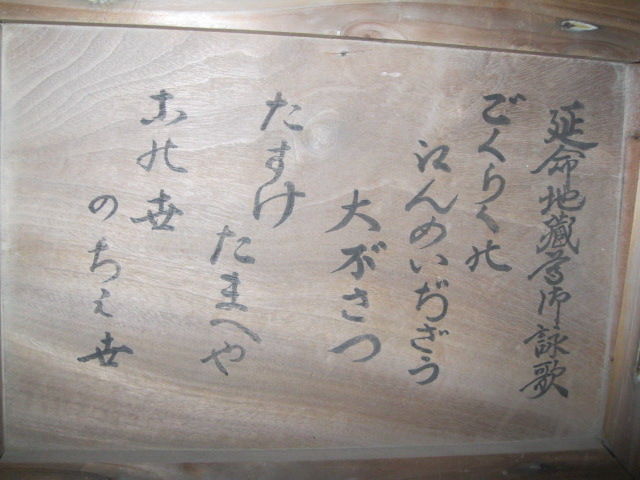 延命地蔵尊御詠歌
ごくらく能
江んめいぢざう
大ぼさつ
たすけ
たまへや
古能世
のちの世